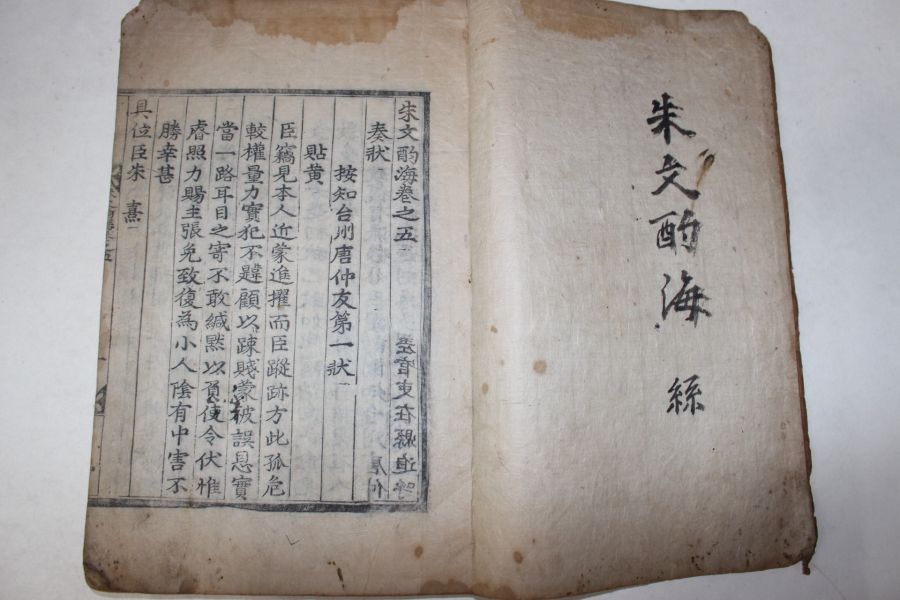 朱文酌海 絲
朱文酌海卷之五
奏狀
按知台州唐仲友第一狀
貼黃
臣竊見本人近蒙進擢而臣蹤跡方此孤危
較權量力實犯不韙顧以踈賤蒙被誤恩實
當一路耳目之寄不敢緘默以負使令伏惟
睿照力賜主張免致復為小人陰有中害不
勝幸甚
具位臣朱 熹